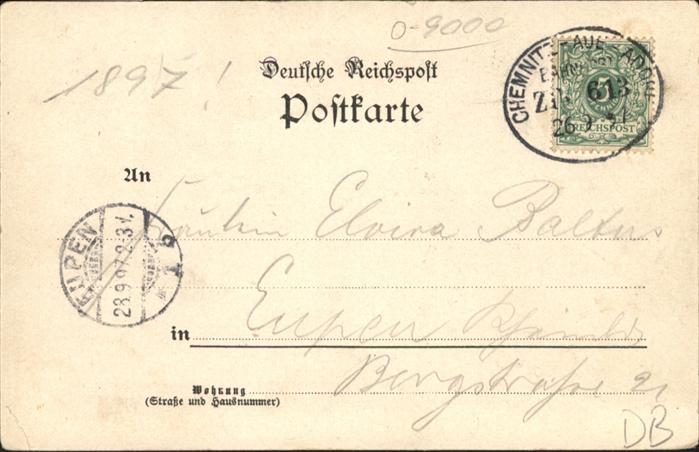 0-9000
1897!
Deutsche Reichspost
Postkarte
CHEMNITZ-AUE-ADORF
BAHNPOST
Z 613
26 9 97
5
REICHSPOST
An
Fräulein Elvira Baltus
EUPEN
28.9.97
in
Eupen
Wohnung
(Straße und Hausnummer)
Bergstraße
DB